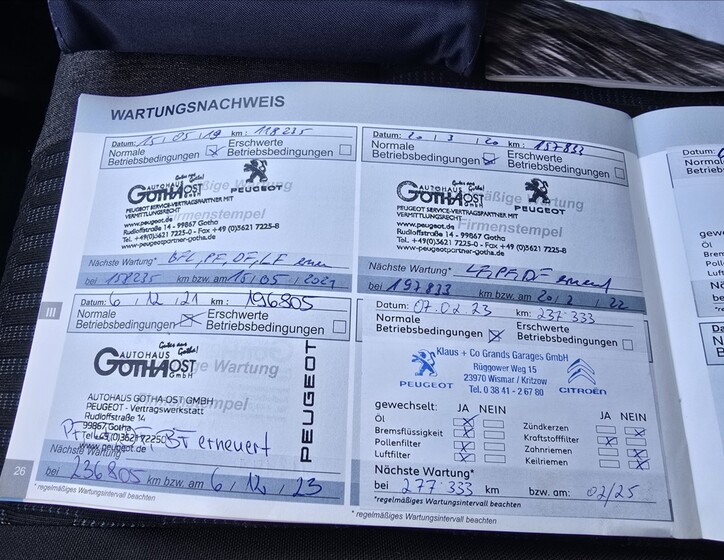 WARTUNGSNACHWEIS
Datum: 15 , 05 , 19 km : 118235
Normale Betriebsbedingungen Erschwerte Betriebsbedingungen
AUTOHAUS Gutes aus Gotha!
GOTHA-OST GmbH
PEUGEOT
PEUGEOT SERVICE-VERTRAGSPARTNER MIT
VERMITTLUNGSRECHT
www.peugeot.de
Rudloffstraße 14 - 99867 Gotha
Tel. +49(0)3621 7225-0 · Fax +49 (0)3621 7225-8
www-peugeotpartner-gotha.de
Nächste Wartung* BFL, PF, DF, LF
bei 158235 km bzw. am 15 , 05 , 2021
Datum: 20 , 3 , 20 km : 157833
Normale Betriebsbedingungen Erschwerte Betriebsbedingungen
AUTOHAUS Gutes aus Gotha!
GOTHA-OST GmbH
PEUGEOT
PEUGEOT SERVICE-VERTRAGSPARTNER MIT
VERMITTLUNGSRECHT
www.peugeot.de
Rudloffstraße 14 - 99867 Gotha
Tel. +49(0)3621 7225-0 · Fax +49 (0)3621 7225-8
www-peugeotpartner-gotha.de
Nächste Wartung* LF, PF, DF
bei 197833 km bzw. am 20 , 2 , 22
III
Datum: 6 , 12 , 21 km : 196805
Normale Betriebsbedingungen Erschwerte Betriebsbedingungen
AUTOHAUS Gutes aus Gotha!
GOTHA-OST GmbH
PEUGEOT
AUTOHAUS GOTHA-OST GMBH
PEUGEOT - Vertragswerkstatt
Rudloffstraße 14
99867 Gotha
www.peugeot.de
erneuert
Nächste Wartung
bei 236805 km bzw. am 6 , 12 , 23
* regelmäßiges Wartungsintervall beachten
26
Datum: 07.02.23 km: 237 333
Normale Betriebsbedingungen Erschwerte Betriebsbedingungen
Klaus + Co Grands Garages GmbH
Rüggower Weg 15
23970 Wismar / Kritzow
Tel. 0 38 41 - 2 67 80
PEUGEOT CITROËN
gewechselt: JA NEIN JA NEIN
Öl Zündkerzen
Bremsflüssigkeit Kraftstofffilter
Pollenfilter Zahnriemen
Luftfilter Keilriemen
Nächste Wartung*
bei 277 333 km bzw. am: 02/25
*regelmäßiges Wartungsintervall beachten
* regelmäßiges Wartungsintervall beachten